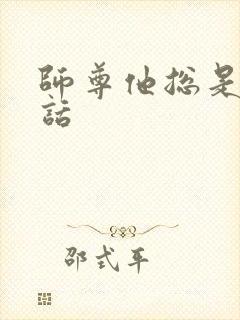 師尊他總是
話
邵式平